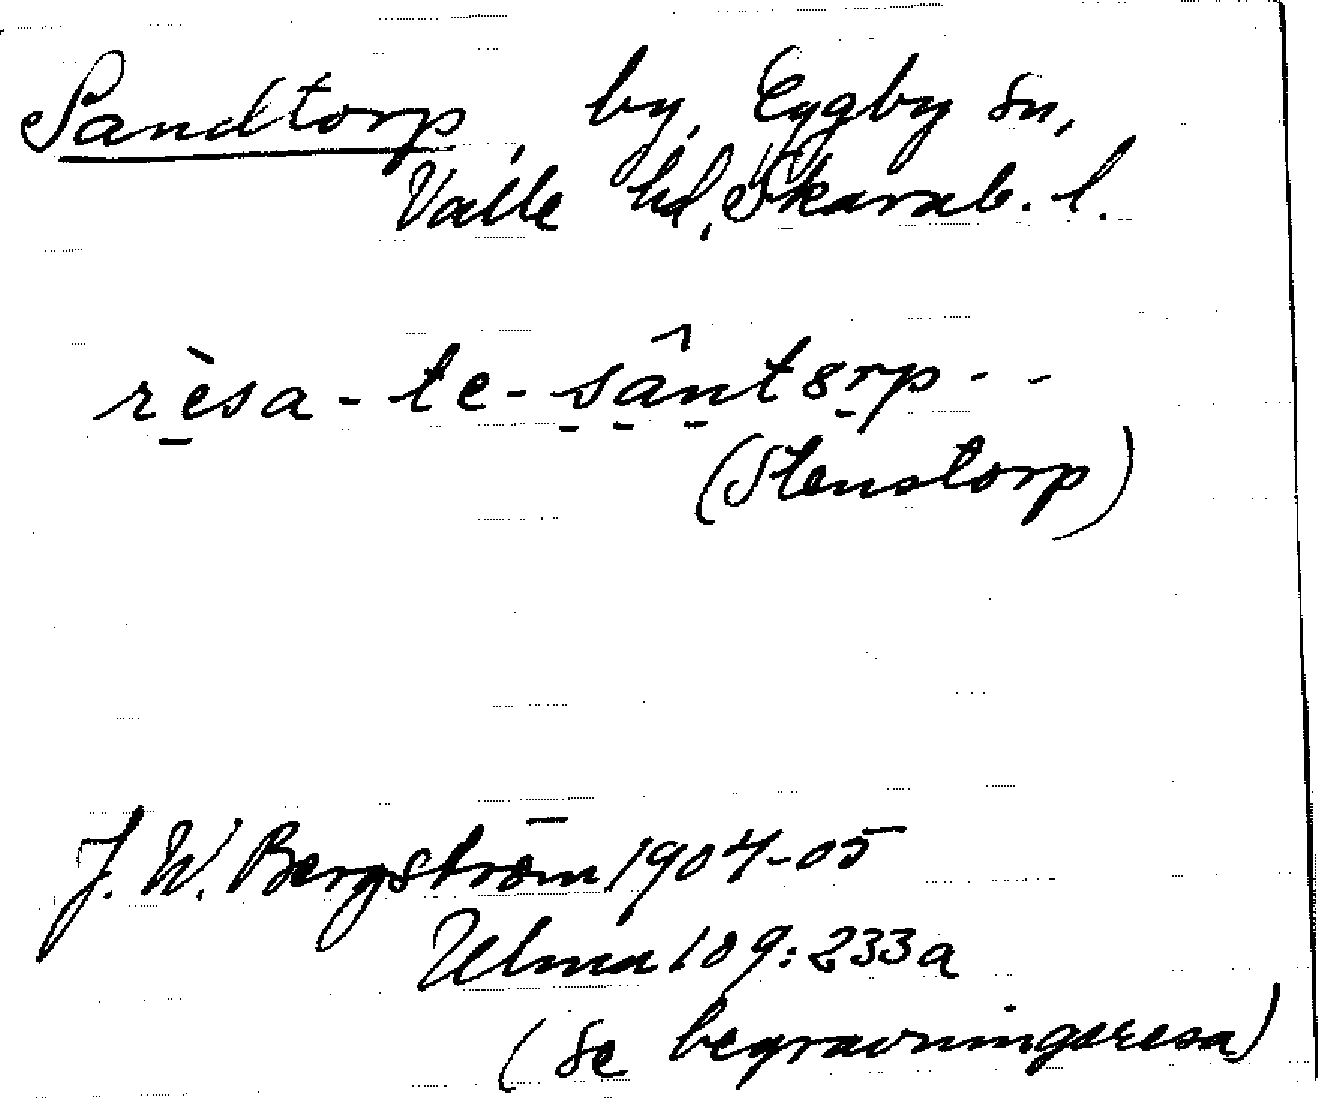 Sandtorp, by, Eggby sn,
Valle hd, Skarab. l.
rèsa-te-sântorp--
(Stenstorp)
J. W. Bergström 1904-05
Ulma 109:233a
(se begravningsresa)